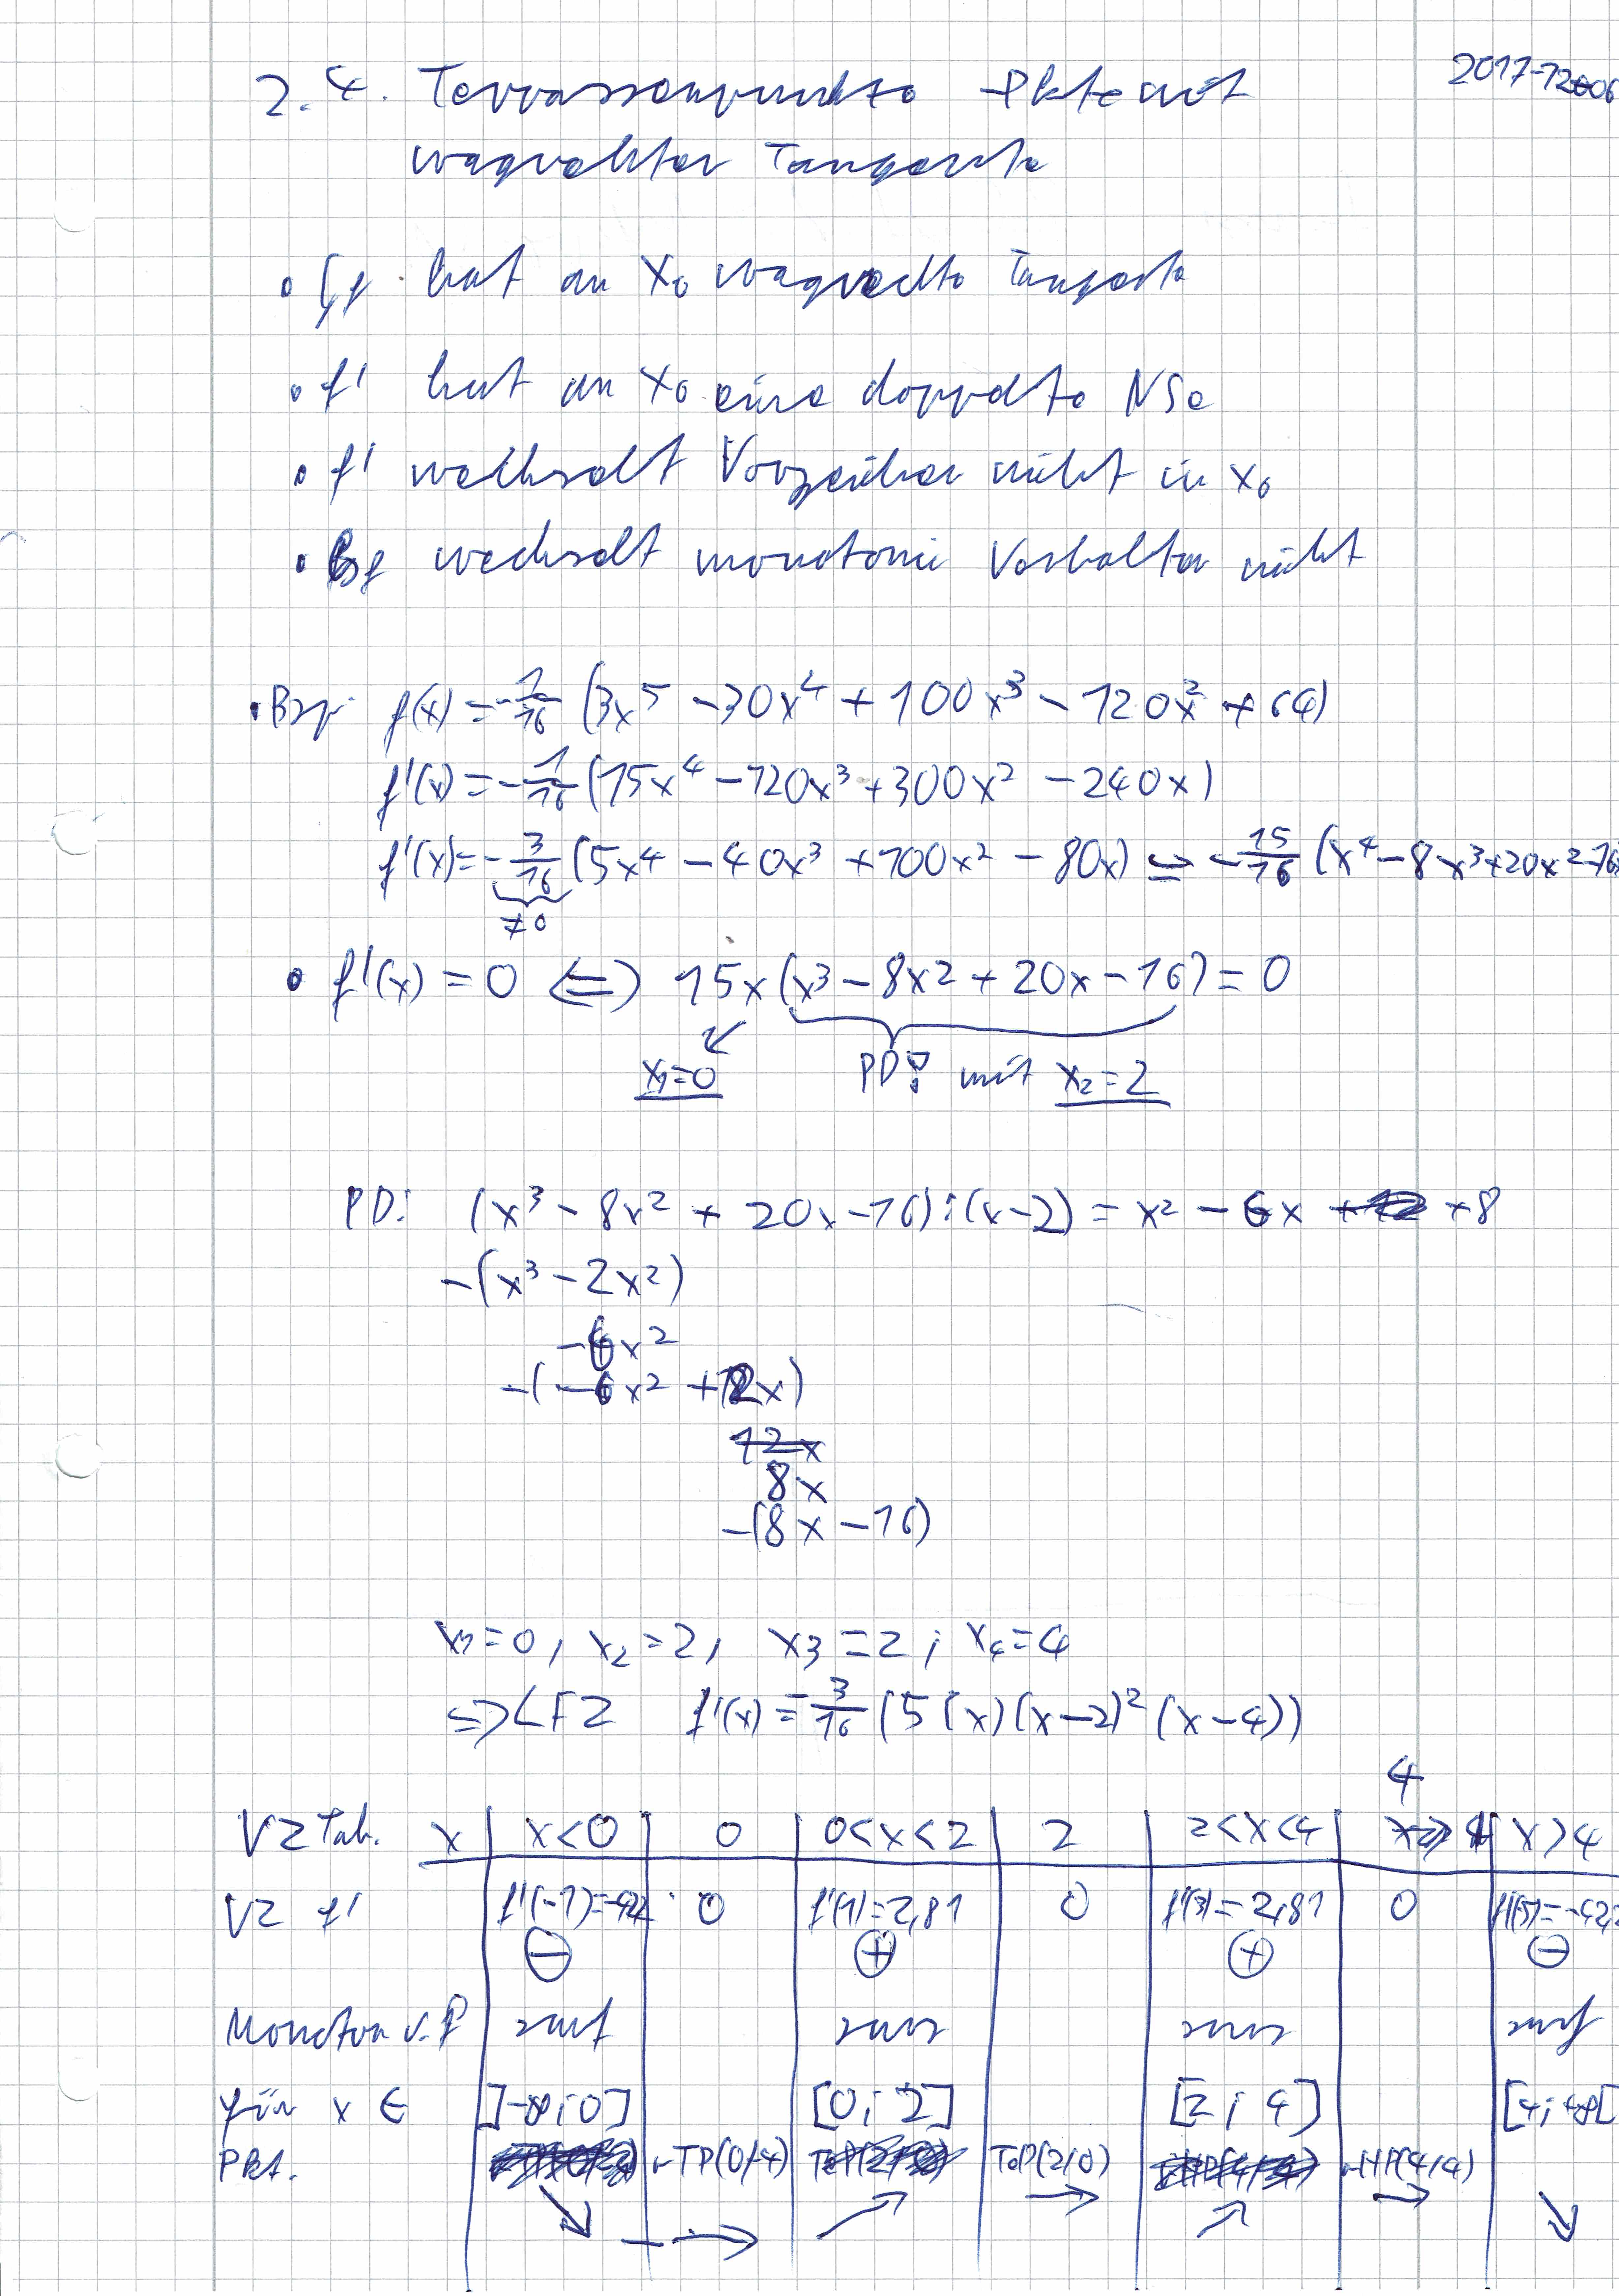 2.4. Terrassenpunkte - Pkte mit 2017-12-06
waagrechter Tangente
• Gf hat an x₀ waagrechte Tangente
• f' hat an x₀ eine doppelte NSe
• f' wechselt Vorzeichen nicht in x₀
• Gf wechselt monotonie Verhalten nicht
• Bsp: f(x) = -1/16 (3x⁵ - 30x⁴ + 100x³ - 120x² + 64)
f'(x) = -1/16 (15x⁴ - 120x³ + 300x² - 240x)
f'(x) = -3/16 (5x⁴ - 40x³ + 100x² - 80x) = -15/16 (x⁴ - 8x³ + 20x² - 16
≠0
• f'(x) = 0 <=> 15x (x³ - 8x² + 20x - 16) = 0
x₁=0 PD! mit x₂=2
PD: (x³ - 8x² + 20x - 16) : (x-2) = x² - 6x + 8
-(x³ - 2x²)
-6x²
-(-6x² + 12x)
12x
8x
-(8x - 16)
x₁=0, x₂=2, x₃=2; x₄=4
=> LFZ f'(x) = -3/16 (5(x)(x-2)²(x-4))
4
VZ Tab. x | x<0 | 0 | 0<x<2 | 2 | 2<x<4 | | x>4
VZ f' f'(-1)=-42 0 f'(1)=2,81 0 f'(3)=2,81 0 f'(5)=-42,2
⊖ ⊕ ⊕ ⊖
Monoton v. f smf sms sms smf
für x ∈ ]-∞;0] [0;2] [2;4] [4;+∞[
Pkt. TP(0/-4) TeP(2/0) HP(4/4)
↘ → ↗ → ↗ → ↘